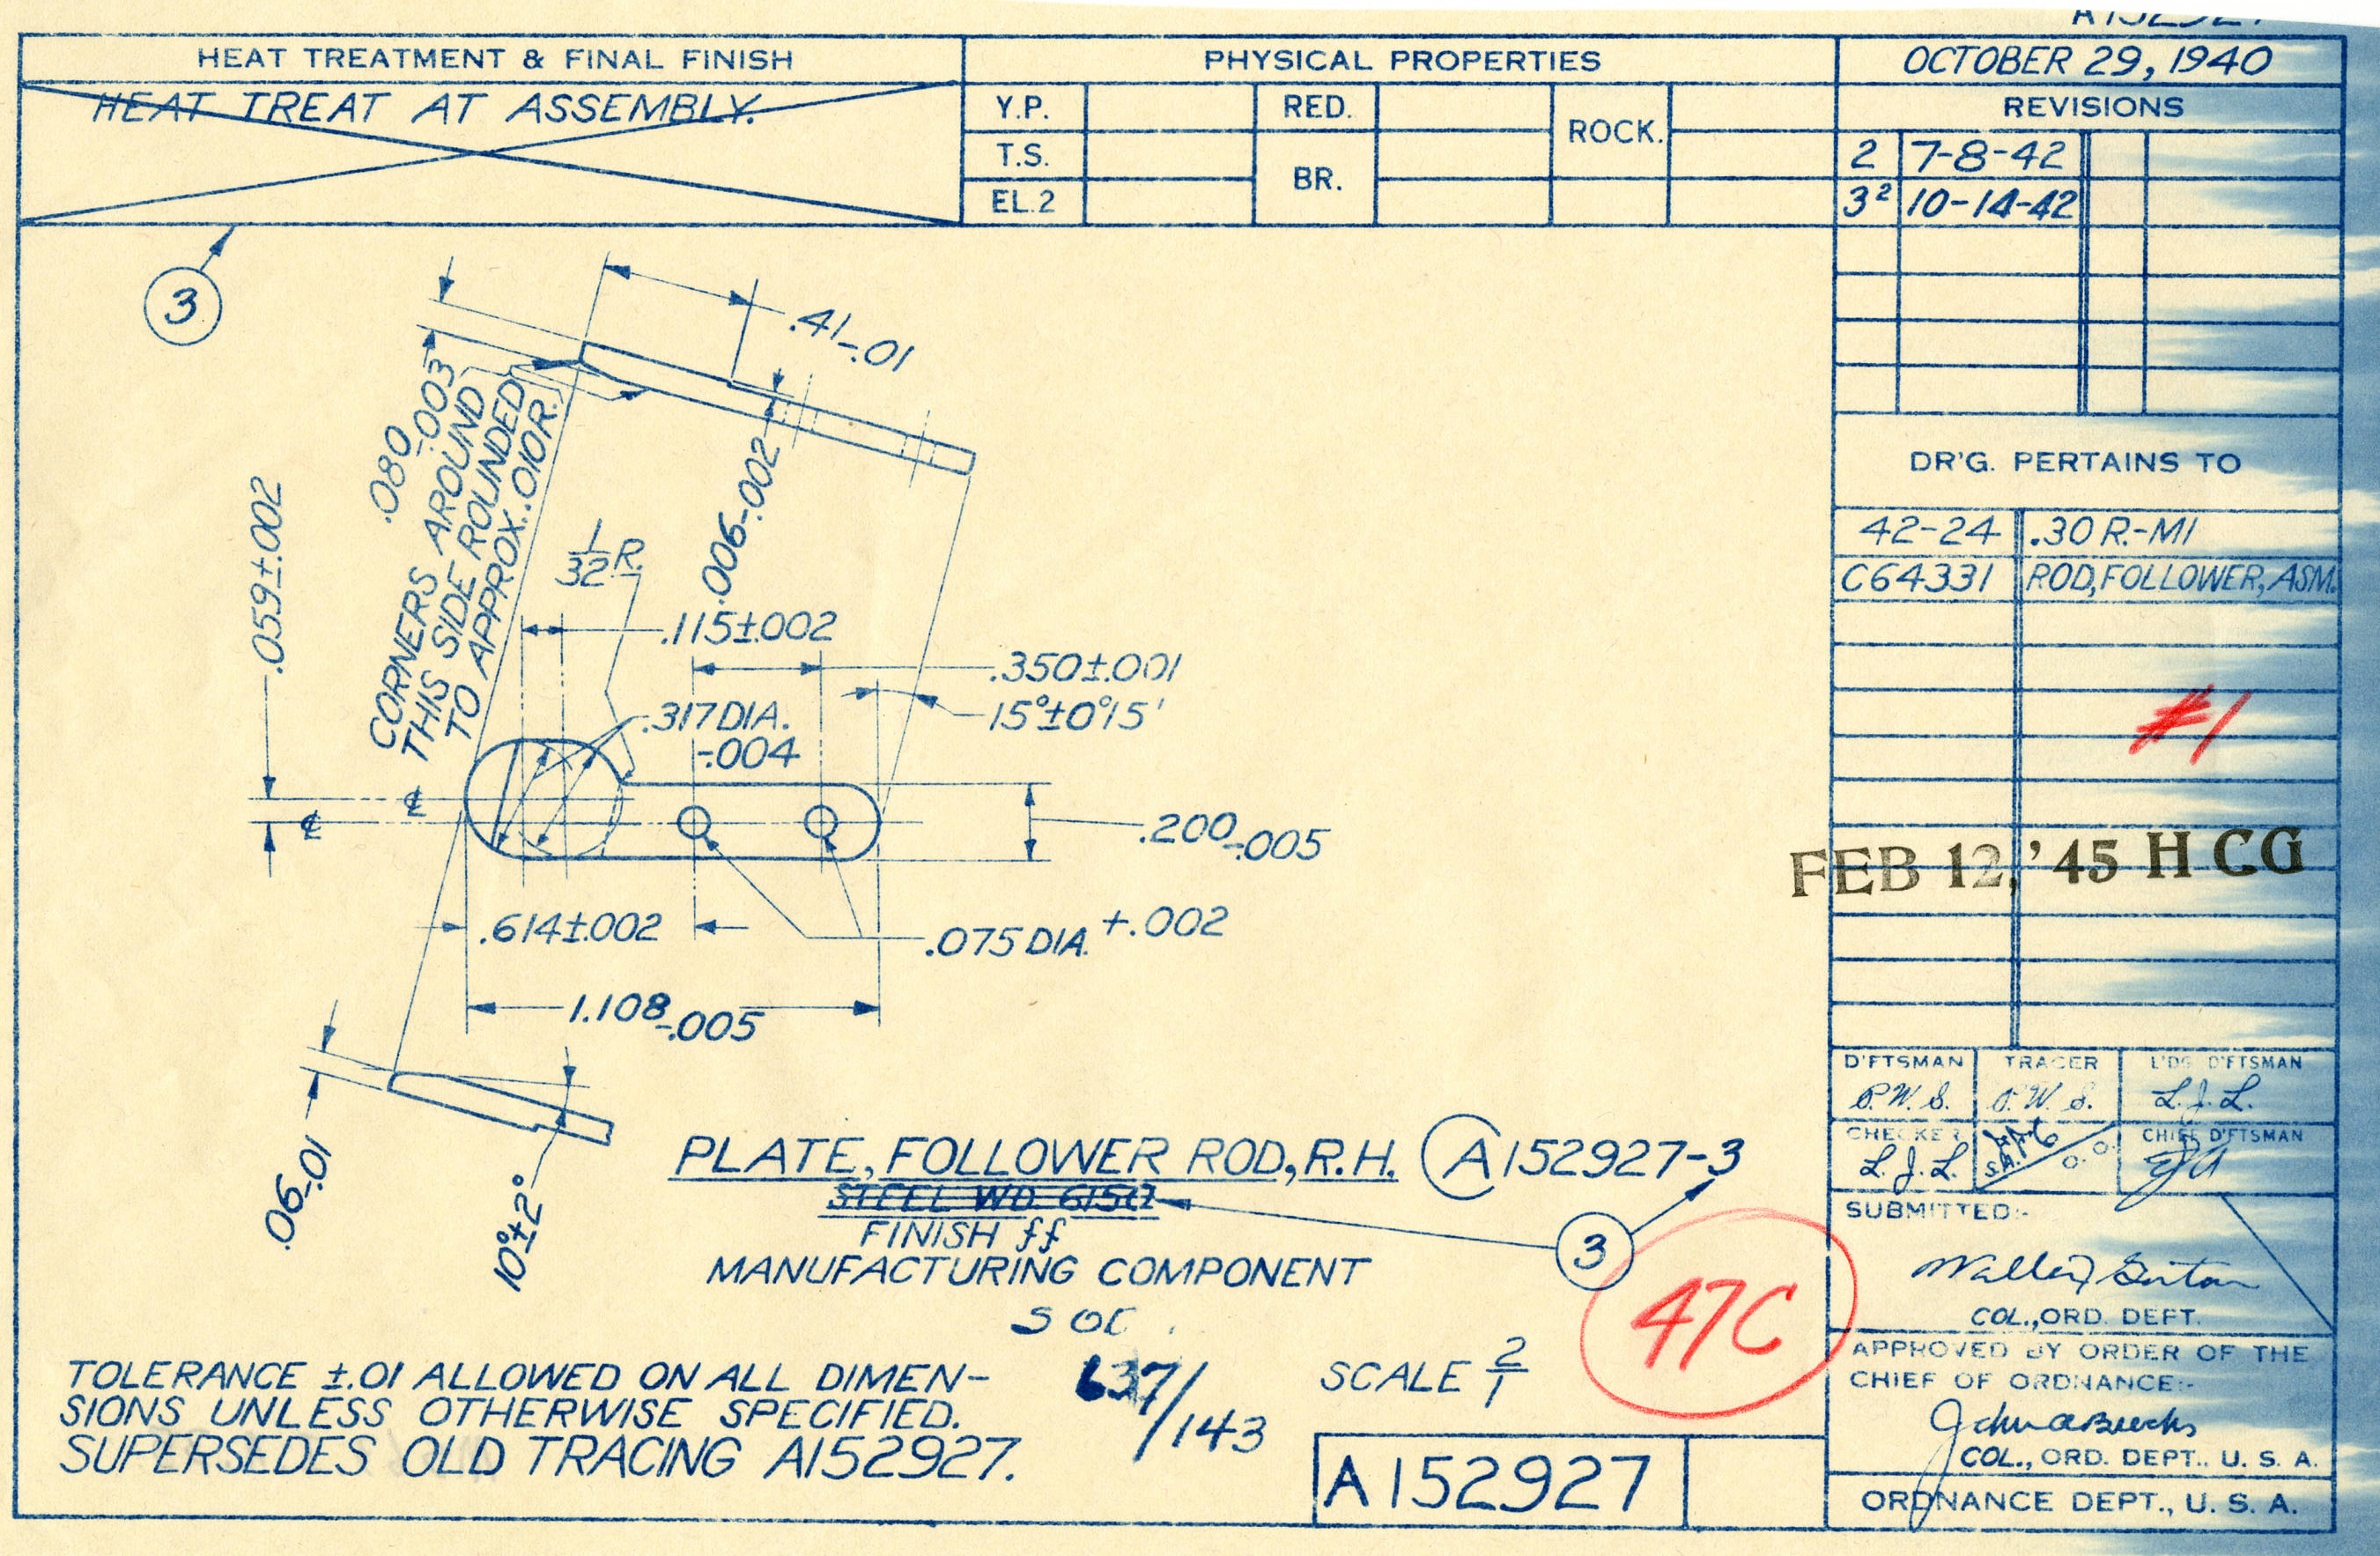 HEAT TREATMENT & FINAL FINISH
HEAT TREAT AT ASSEMBLY.
PHYSICAL PROPERTIES
Y.P.
T.S.
EL.2
RED.
BR.
ROCK.
OCTOBER 29, 1940
REVISIONS
2 7-8-42
3² 10-14-42
3
.41-.01
.080-.003
CORNERS AROUND
THIS SIDE ROUNDED
TO APPROX. .010R.
.059±.002
1/32 R.
.006-.002
.115±.002
.350±.001
15°±0°15'
.317 DIA.
-.004
℄
℄
.200-.005
.614±.002
.075 DIA. +.002
1.108-.005
.06-.01
10°±2°
DR'G. PERTAINS TO
42-24 .30 R.-M1
C64331 ROD, FOLLOWER, ASM.
#1
FEB 12, '45 H CG
PLATE, FOLLOWER ROD, R.H. A152927-3
STEEL WD 6150
FINISH ff
MANUFACTURING COMPONENT
3
47C
637/143
SCALE 2/1
TOLERANCE ±.01 ALLOWED ON ALL DIMEN-
SIONS UNLESS OTHERWISE SPECIFIED.
SUPERSEDES OLD TRACING A152927.
A152927
D'FTSMAN TRACER L'DG D'FTSMAN
P.W.S. P.W.S. L.J.L.
CHECKER CHIEF D'FTSMAN
L.J.L.
SUBMITTED:-
COL., ORD. DEPT.
APPROVED BY ORDER OF THE
CHIEF OF ORDNANCE:-
COL., ORD. DEPT., U. S. A.
ORDNANCE DEPT., U. S. A.